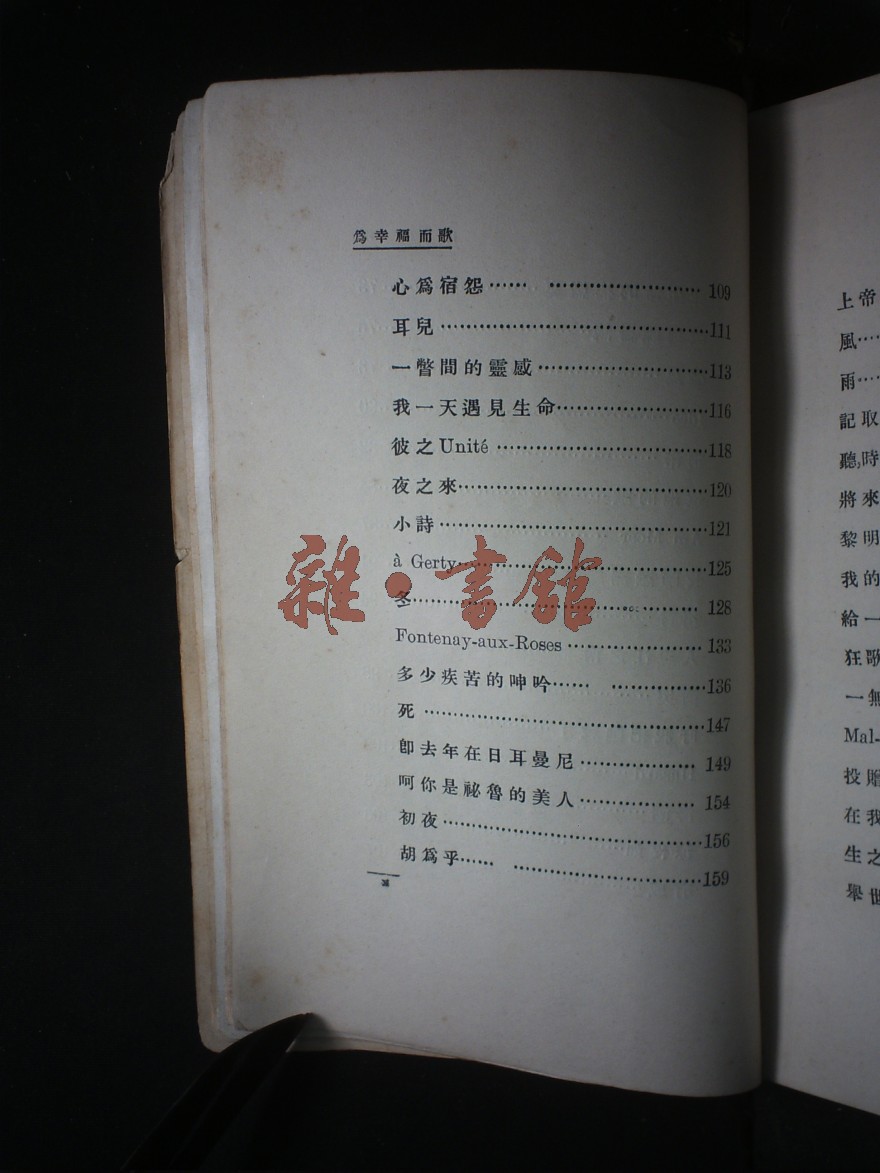 為幸福而歌
心為宿怨…… ………………………109
耳兒……………………………………111
一瞥間的靈感…………………………113
我一天遇見生命………………………116
彼之Unité ……………………………118
夜之來…………………………………120
小詩……………………………………121
à Gerty…………………………………125
冬………………………………………128
Fontenay-aux-Roses …………………133
多少疾苦的呻吟…… ………………136
死 ……………………………………147
卽去年在日耳曼尼 …………………149
呵你是祕魯的美人 …………………154
初夜……………………………………156
胡為乎…… …………………………159
雜·書館
上帝
風……
雨……
記取
聽,時
將來
黎明
我的
給一
狂歌
一無
Mal-
投贈
在我
生之
舉世